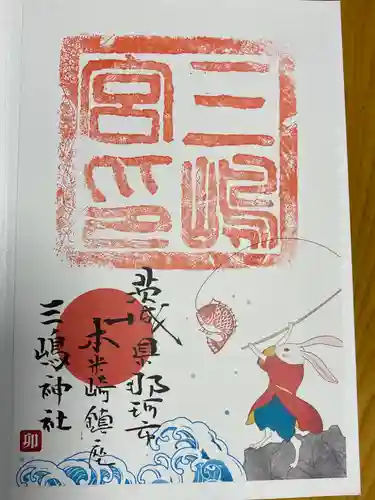 三嶋
宮印
茨城県那珂市
本米崎鎮座
三嶋神社
卯